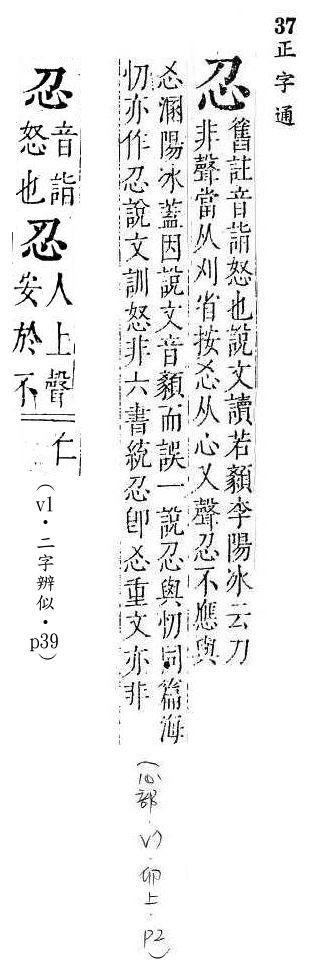 37正字通
㣼舊註音詣怒也說文讀若顡李陽冰云刀
非聲當从刈省按㣻从心乂聲㣼不應與
㣻溷陽冰蓋因說文音顡而誤一說㣼與忉同篇海
忉亦作㣼說文訓怒非六書統㣼卽㣻重文亦非
(心部.v7.卯上.p2)
㣼音詣
怒也
忍人上聲
安於不
仁
(v1.二字辨似.p39)